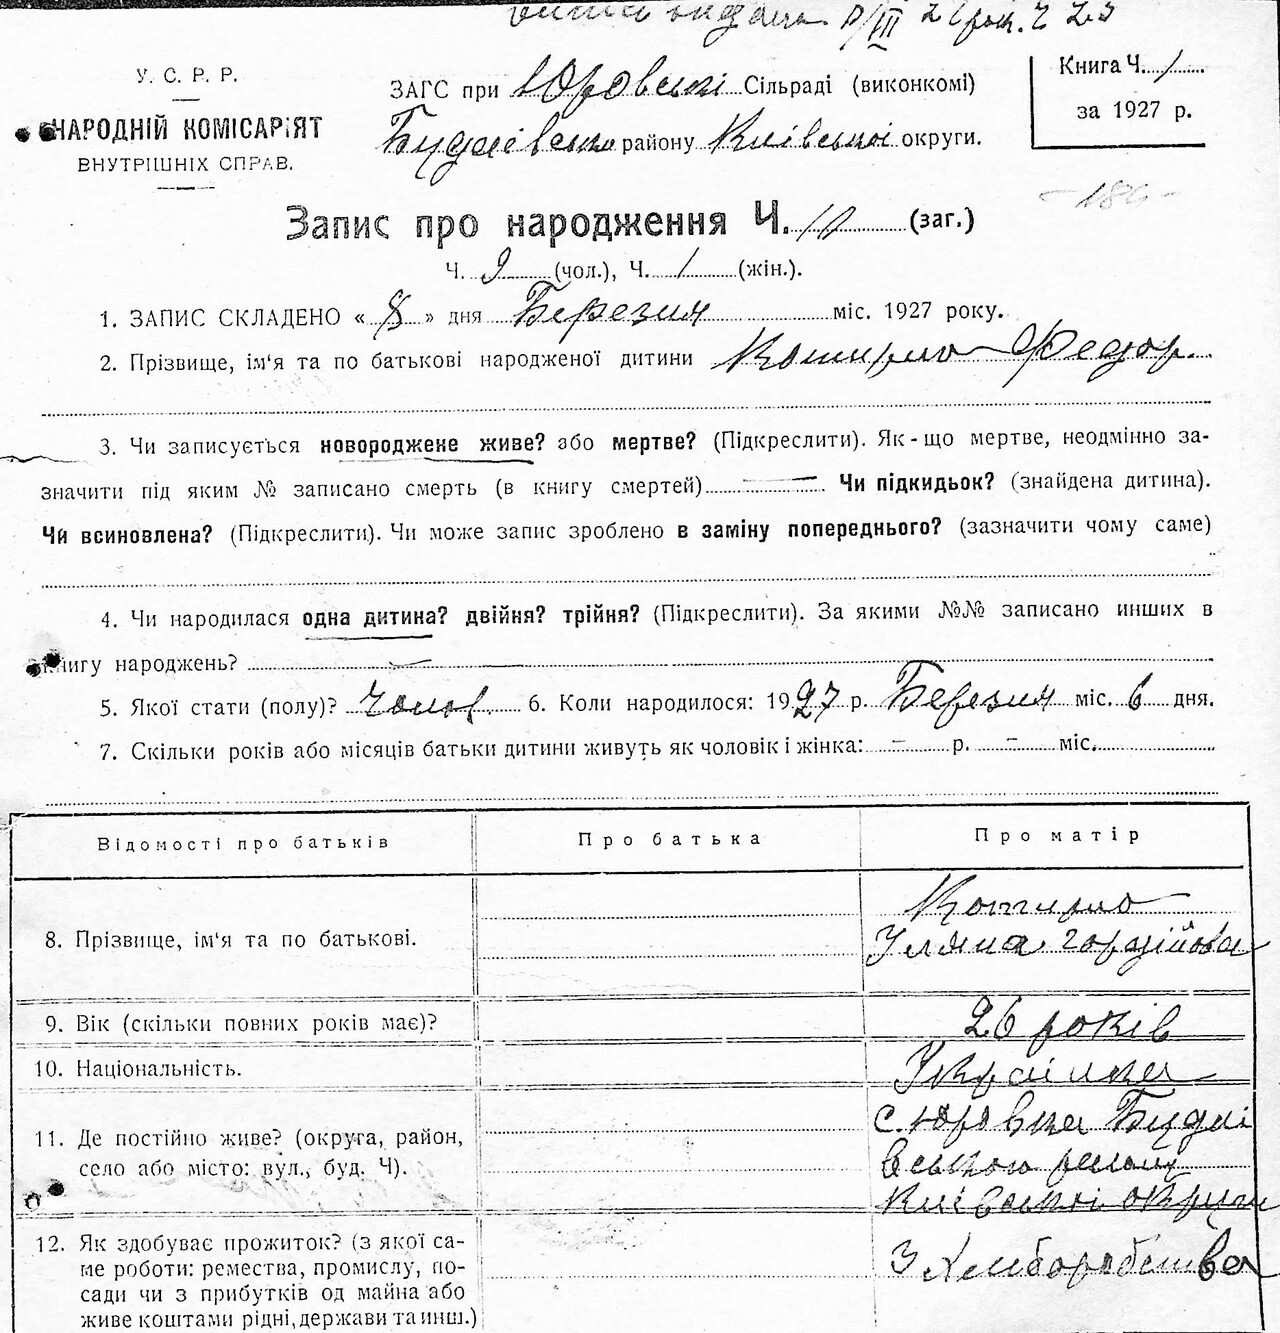 У. С. Р. Р.
НАРОДНІЙ КОМІСАРІЯТ
ВНУТРІШНІХ СПРАВ.
ЗАГС при Юровські Сільраді (виконкомі)
Будаївсько району Київської округи.
Книга Ч. 1
за 1927 р.
Запис про народження Ч. 10 (заг.)
Ч. 9 (чол.), Ч. 1 (жін.).
1. ЗАПИС СКЛАДЕНО « 8 » дня Березня міс. 1927 року.
2. Прізвище, ім'я та по батькові народженої дитини Федор.
3. Чи записується новороджене живе? або мертве? (Підкреслити). Як-що мертве, неодмінно за-
значити під яким № записано смерть (в книгу смертей) Чи підкидьок? (знайдена дитина).
Чи всиновлена? (Підкреслити). Чи може запис зроблено в заміну попереднього? (зазначити чому саме)
4. Чи народилася одна дитина? двійня? трійня? (Підкреслити). За якими №№ записано инших в
книгу народжень?
5. Якої стати (полу)? Чолов. 6. Коли народилося: 1927 р. Березня міс. 6 дня.
7. Скільки років або місяців батьки дитини живуть як чоловік і жінка: - р. - міс.
Відомості про батьків Про батька Про матір
8. Прізвище, ім'я та по батькові.
Уляна Гордійовна
9. Вік (скільки повних років має)? 26 років
10. Національність. Українка
11. Де постійно живе? (округа, район,
село або місто: вул., буд. Ч).
с. Юровка Будаї
вського району
Київської округи
12. Як здобуває прожиток? (з якої са-
ме роботи: ремества, промислу, по-
сади чи з прибутків од майна або
живе коштами рідні, держави та инш.)
З Хліборобства